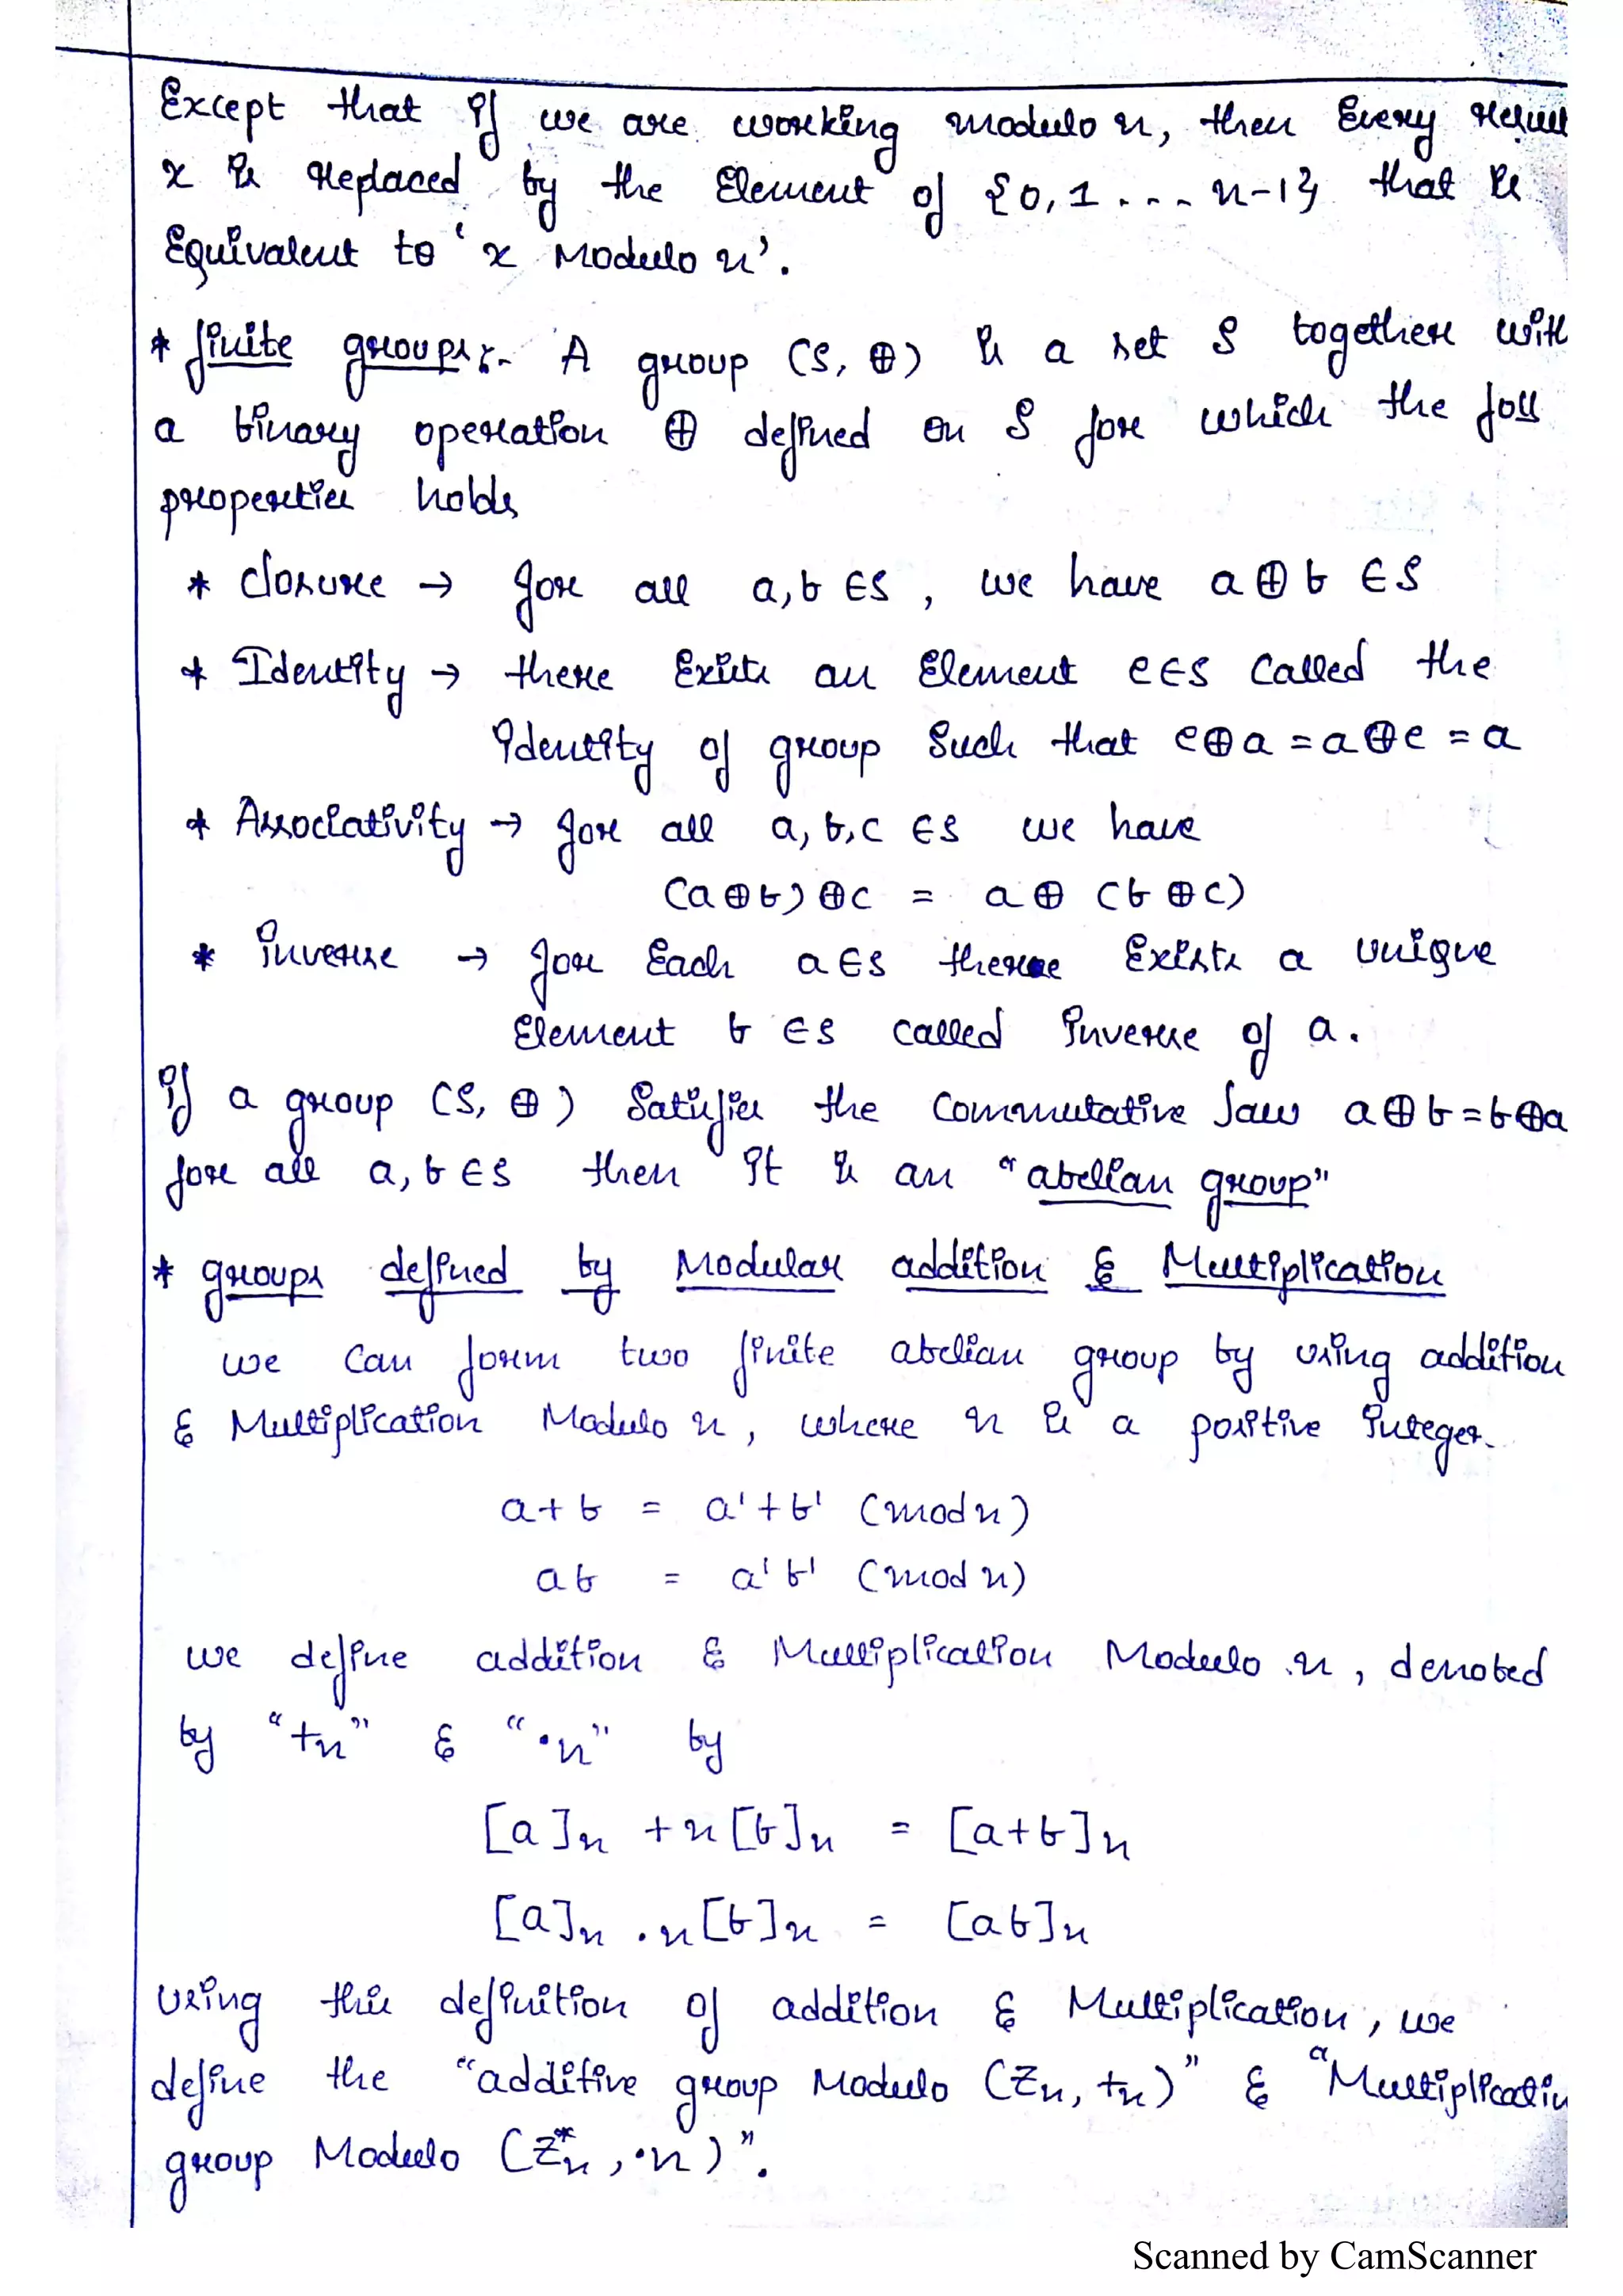 Except that if we are working modulo n, then Every
x is replaced by the Element of {0,1 ... n-1} that is
Equivalent to 'x Modulo n'.
* finite groups:- A group (S, ⊕) is a set S together with
a binary operation ⊕ defined on S for which the foll
properties holds
* closure → for all a,b ∈ S, we have a ⊕ b ∈ S
* Identity → there Exists an Element e ∈ S called the
identity of group Such that e ⊕ a = a ⊕ e = a
* Associativity → for all a, b, c ∈ S we have
(a ⊕ b) ⊕ c = a ⊕ (b ⊕ c)
* inverse → for Each a ∈ S there Exists a unique
Element b ∈ S called inverse of a.
if a group (S, ⊕) Satisfies the Commutative law a ⊕ b = b ⊕ a
for all a, b ∈ S then it is an "abelian group"
* groups defined by Modular addition & Multiplication
we can form two finite abelian group by using addition
& Multiplication Modulo n, where n is a positive integer.
a + b = a' + b' (mod n)
ab = a' b' (mod n)
we define addition & Multiplication Modulo n, denoted
by "+n" & "·n" by
[a]n +n [b]n = [a+b]n
[a]n ·n [b]n = [ab]n
using this definition of addition & Multiplication, we
define the "additive group Modulo (Zn, +n)" & "Multiplicativ
group Modulo (Z*n, ·n)".
Scanned by CamScanner